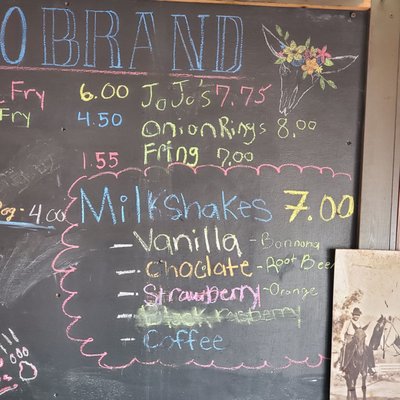 O BRAND
Fry 6.00 JoJo's 7.75
Fry 4.50 Onion Rings 8.00
1.55 Fring 7.00
Milkshakes 7.00
4.00
- Vanilla - Bannana
- Choclate - Root Beer
- Strawberry - Orange
- Black raspberry
- Coffee